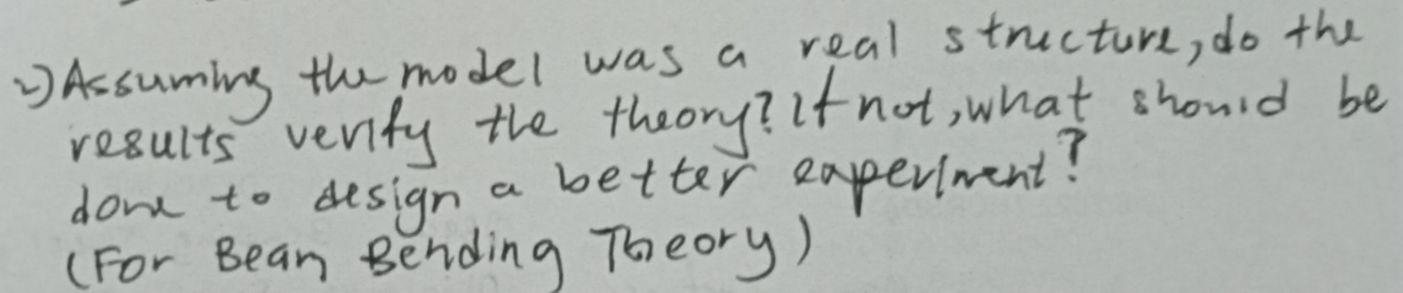 2) Assuming the model was a real structure, do the
results verify the theory? If not, what should be
done to design a better experiment?
(For Beam Bending Theory)